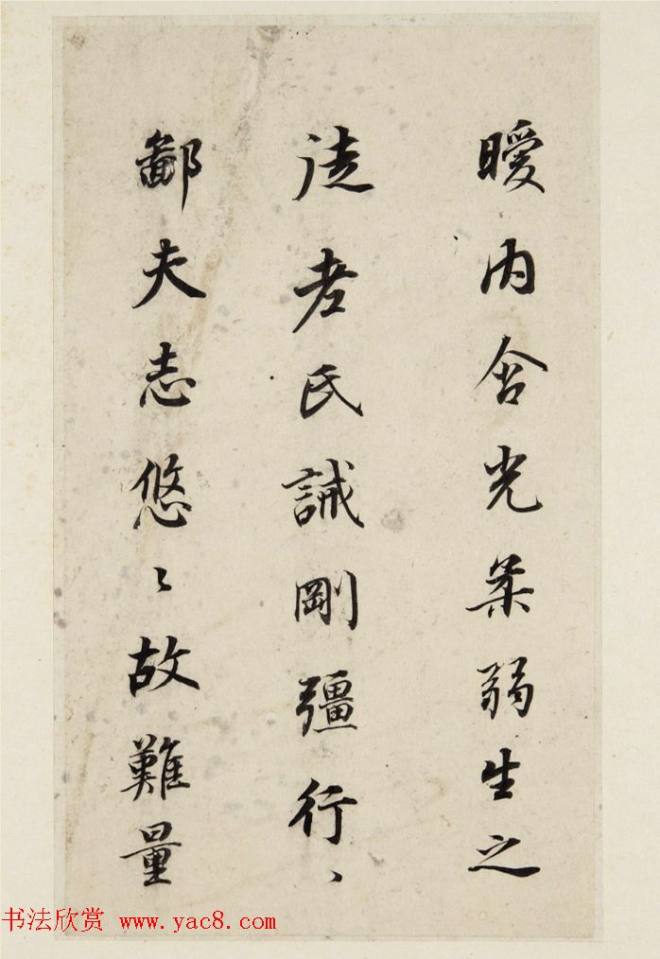 曖內含光柔弱生之
徒老氏誡剛彊行丶
鄙夫志悠〻故難量
书法欣赏 www.yac8.com